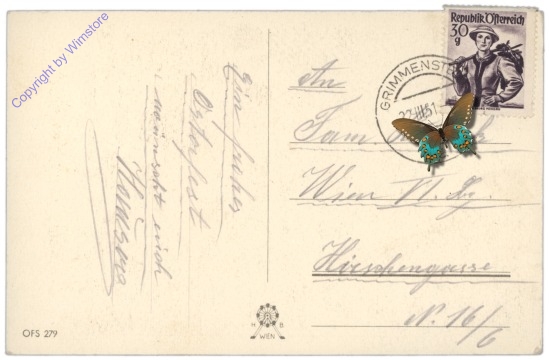 Copyright by Wimstore
Ein frohes
Osterfest
wünscht euch
Republik Österreich
30
g
GRIMMENST
An
Fam.
Wien VI. Bz.
Hirschengasse
N. 16/6
H B
WIEN
OFS 279